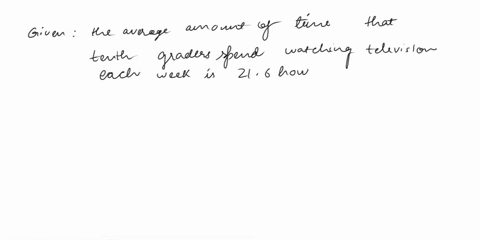 Given : the average amount of time that
tenth graders spend watching television
each week is 21.6 how